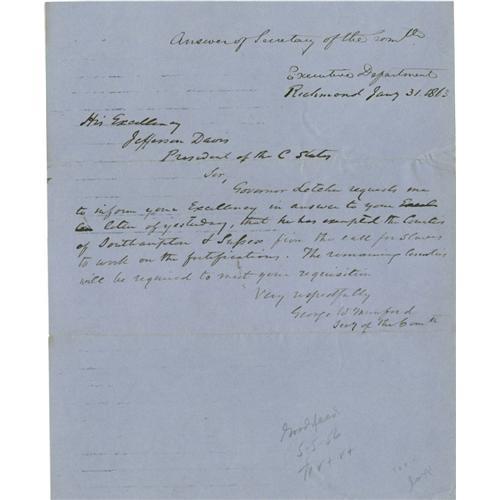 Answer of Secretary of the Comth.
Executive Department
Richmond Jany 31 1863
His Excellency
Jefferson Davis
President of the C States
Sir,
Governor Letcher requests me
to inform your Excellency in answer to your
letter of yesterday, that he has exempted the Counties
of Southampton & Sussex from the call for slaves
to work on the fortifications. The remaining Counties
will be required to meet your requisition
Very respectfully
George W Munford
Secy of the Comth
5-5-66